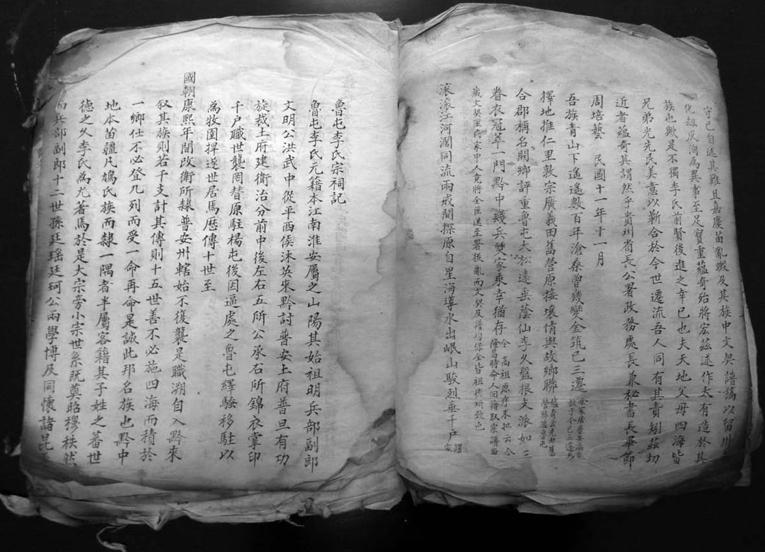 守己自遜其難且嘉慶苗亂燬及其族中文契譜謁以智川
化祖反潤為異事至足寶重蘊奇給將宏茲述作太有造於其
族也歟是不獨李氏前賢後進之幸已也夫天地父母四海皆
兄弟光先民美意以靳合於今世遷流吾人同有其責朂茲切
近者蘊奇其謂然乎貴州省長公署政務處長兼秘書長畢節
周培藝 民國十一年十一月
吾族青山下逶遙數百年滄桑曾幾變金筑已三遷
擇地推仁里敦宗廣義田舊營原接壤情與故鄉聯
合郡稱名閥鄉評重魯屯大松遠垂蔭仙李久盤根支派如三
眷衣冠萃一門黔中殘兵燹家乘幸猶存
滾滾江河濶同流兩戒間探源自星海導水出岷山駿烈垂千戶
魯屯李氏宗祠記
魯屯李氏元籍本江南淮安屬之山陽其始祖明兵部副郎
文明公洪武中從平西侯沐英來黔討普安土府普旦有功
旋裁土府建衛治分前中後左右五所公承右所錦衣掌印
千戶職世襲罔替原駐楊屯後因逼處之魯屯繹騷移駐以
為牧圉捍遂世居馬歷傳十世至
國朝康熙年間改衛所隸普安州轄始不復襲是職溯自入黔來
叙其族則若干支計其傳則十五世善不必施四海而積於
一鄉仕不必登九列而受一命再命是誠此邦名族也黔中
地本苗疆凡旖氏族而隸一隅者半屬客籍其子姓之蕃世
德之久李氏為尤著焉於是大宗旁小宗世系既奠昭穆秩然
兵部副郎十二世孫廷瑤廷珂公兩學博及同懷諸昆